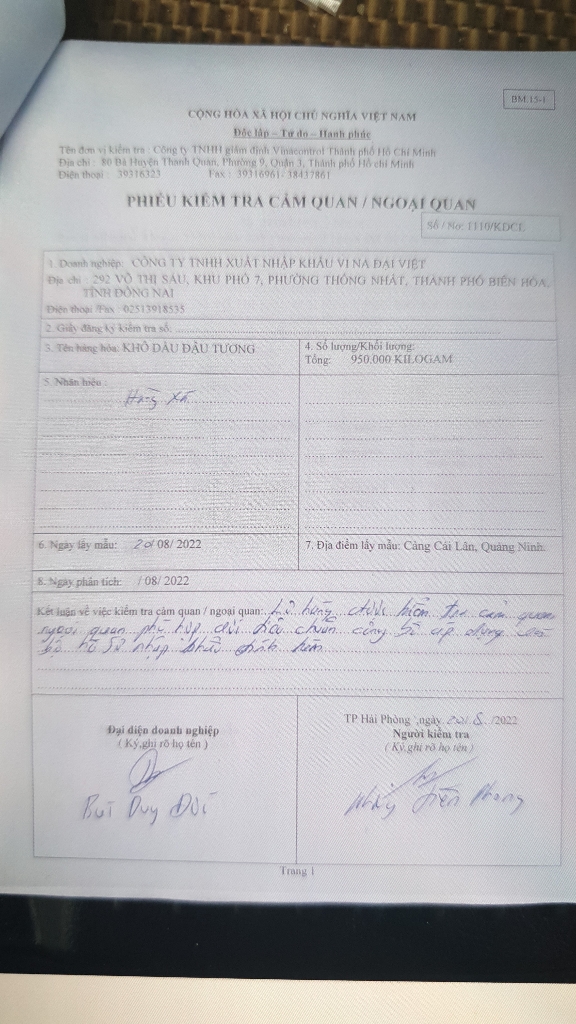 BM 15-1
CỘNG HÒA XÃ HỘI CHỦ NGHĨA VIỆT NAM
Độc lập – Tự do – Hạnh phúc
Tên đơn vị kiểm tra : Công ty TNHH giám định Vinacontrol Thành phố Hồ Chí Minh
Địa chỉ : 80 Bà Huyện Thanh Quan, Phường 9, Quận 3, Thành phố Hồ chí Minh
Điện thoại : 39316323 Fax : 39316961- 38437861
PHIẾU KIỂM TRA CẢM QUAN / NGOẠI QUAN
Số / No: 1110/KĐCL
1. Doanh nghiệp: CÔNG TY TNHH XUẤT NHẬP KHẨU VI NA ĐẠI VIỆT
Địa chỉ : 292 VÕ THỊ SÁU, KHU PHỐ 7, PHƯỜNG THỐNG NHẤT, THÀNH PHỐ BIÊN HÒA,
TỈNH ĐỒNG NAI
Điện thoại /Fax : 02513918535
2. Giấy đăng ký kiểm tra số:
3. Tên hàng hóa: KHÔ DẦU ĐẬU TƯƠNG
4. Số lượng/Khối lượng:
Tổng: 950.000 KILOGAM
5. Nhãn hiệu :
Hàng xá
6. Ngày lấy mẫu: 20/ 08/ 2022
7. Địa điểm lấy mẫu: Cảng Cái Lân, Quảng Ninh.
8. Ngày phân tích: / 08/ 2022
Kết luận về việc kiểm tra cảm quan / ngoại quan: Lô hàng được kiểm tra cảm quan
ngoại quan phù hợp với tiêu chuẩn công bố áp dụng
hồ sơ nhập khẩu
Đại diện doanh nghiệp
( Ký,ghi rõ họ tên )
Bùi Duy Đức
TP Hải Phòng ,ngày 20/ 8 /2022
Người kiểm tra
( Ký,ghi rõ họ tên )
Tiến Phong
Trang 1